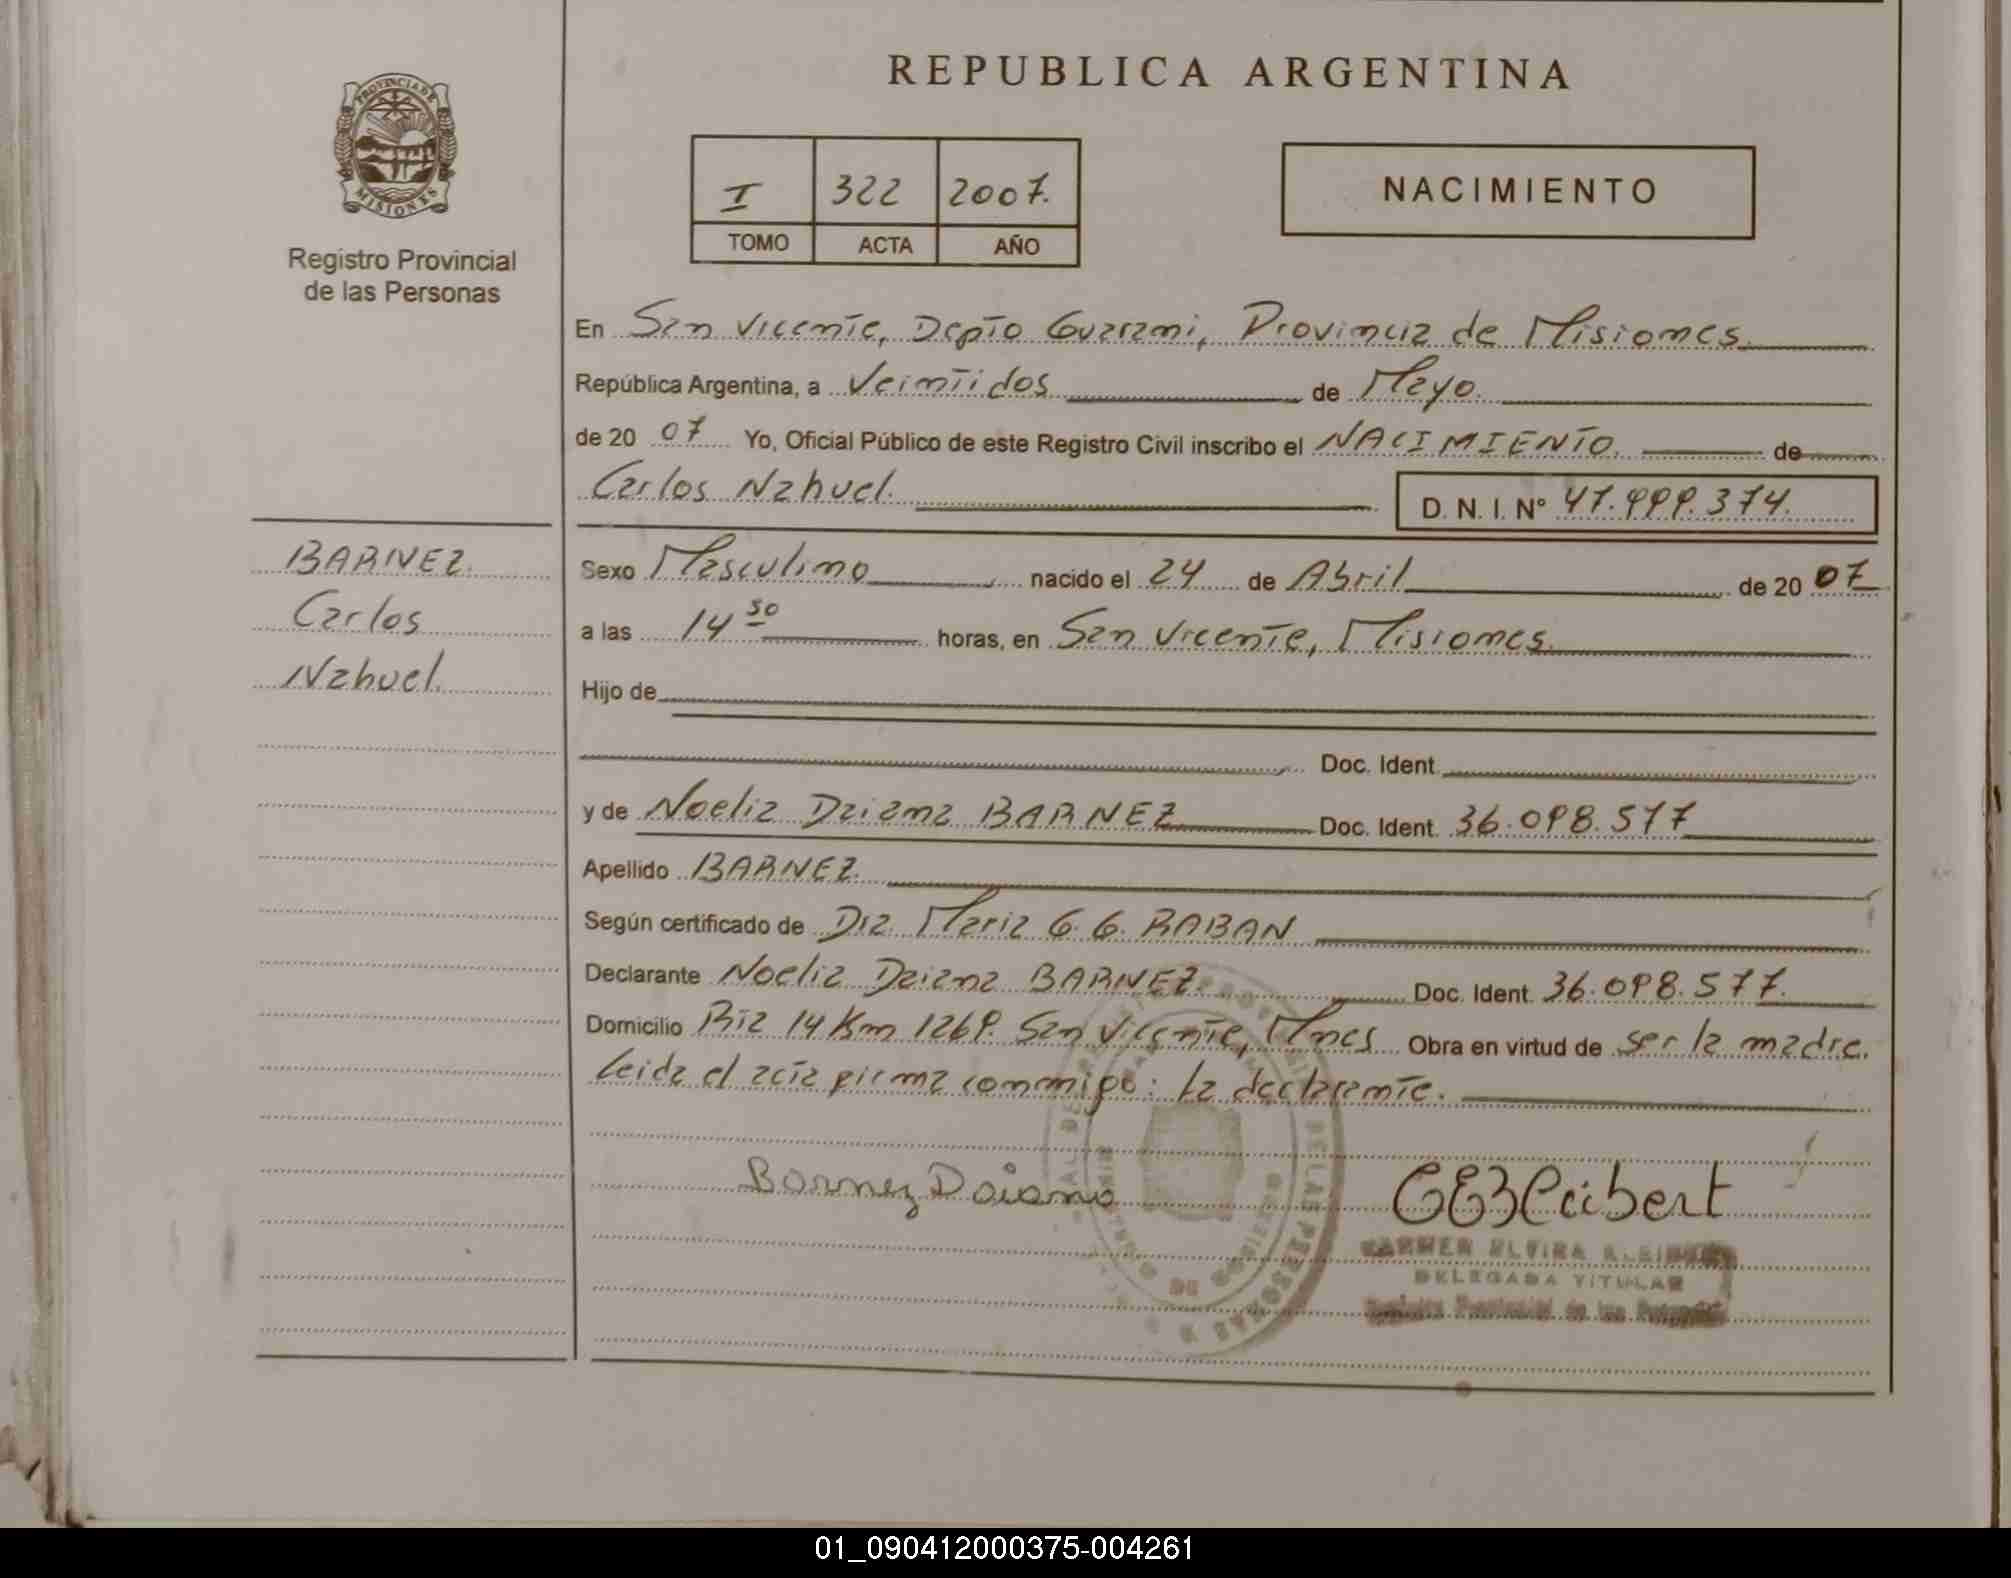 REPUBLICA ARGENTINA
PROVINCIA DE
MISIONES
Registro Provincial
de las Personas
I 322 2007.
TOMO ACTA AÑO
NACIMIENTO
En San Vicente, Depto Guarani, Provincia de Misiones.
República Argentina, a Veintidos de Mayo.
de 20 07 Yo, Oficial Público de este Registro Civil inscribo el NACIMIENTO. de
Carlos Nahuel. D. N. I. Nº 47.999.374.
BARNEZ.
Carlos
Nahuel.
Sexo Masculino nacido el 24 de Abril de 20 07
a las 14 30 horas, en San Vicente, Misiones.
Hijo de
Doc. Ident.
y de Noelia Daiana BARNEZ Doc. Ident. 36.098.577
Apellido BARNEZ.
Según certificado de Dra. Maria G. G. RABAN
Declarante Noelia Daiana BARNEZ. Doc. Ident. 36.098.577.
Domicilio Rta 14 Km 1269. San Vicente, Mnes Obra en virtud de ser la madre.
Leida el acta firma conmigo: La declarante.
Barnez Daiana
CEB Leibert
CARMEN ELVIRA
DELEGADA TITULAR
Registro Provincial de las Personas
DE LAS PERSONAS
01_090412000375-004261